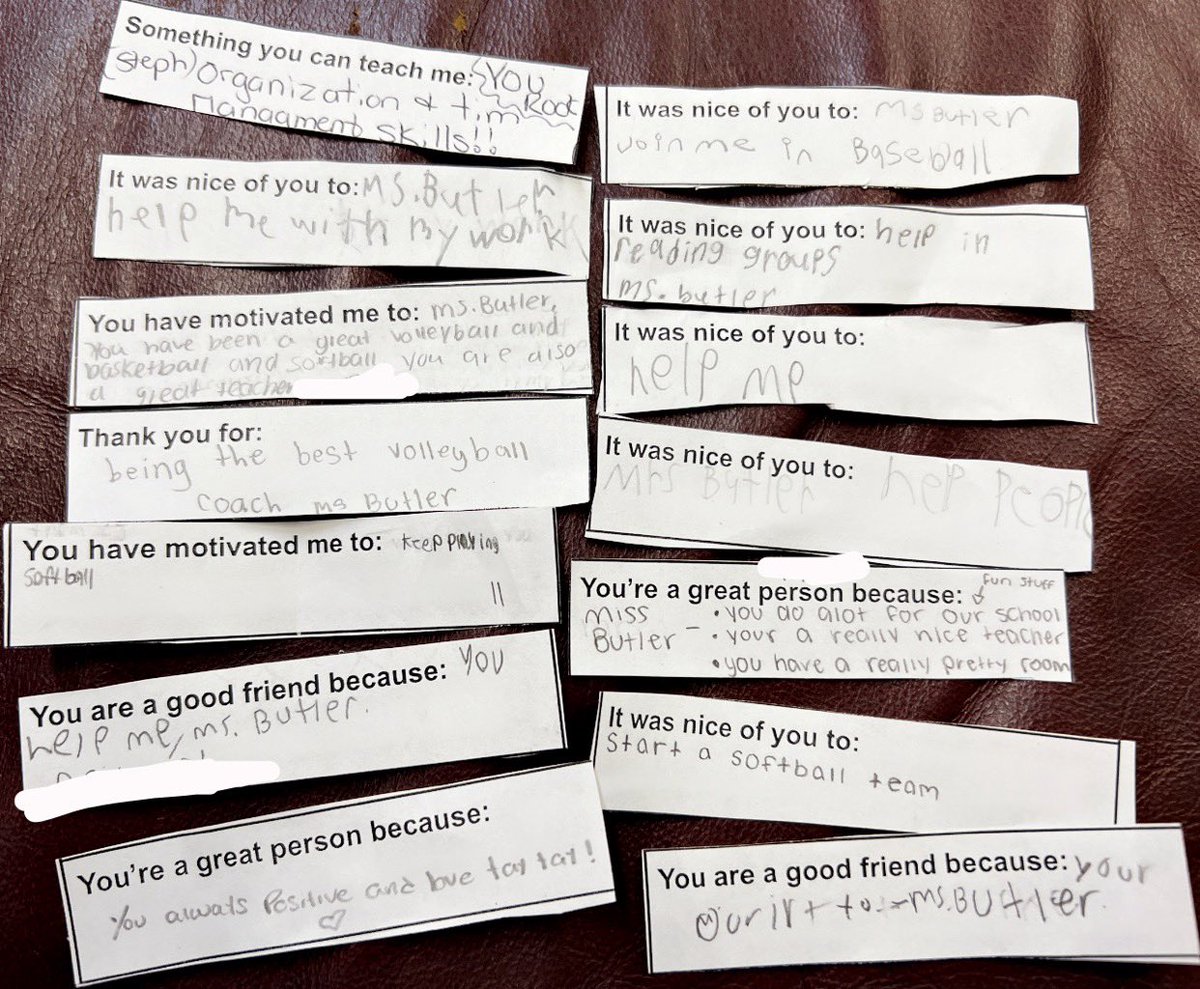 Something you can teach me: {YOU
(Steph) Organization & tim Rock
Managment Skills!!
It was nice of you to: MS.Butler
help me with my work
You have motivated me to: ms.Butler,
You have been a great volleyball and
basketball and softball you are also
a great teacher
Thank you for:
being the best volleyball
coach ms Butler
You have motivated me to: keep playing
softball
You are a good friend because: you
help me, ms. Butler.
You're a great person because:
You always Positive and love tay tay!
It was nice of you to: Ms Butler
Join me in Baseball
It was nice of you to: help in
reading groups
ms. butler
It was nice of you to:
help me
It was nice of you to:
Mrs Butler help People
You're a great person because: fun stuff
Miss • you do alot for our school
Butler – • your a really nice teacher
• you have a really pretty room
It was nice of you to:
Start a softball team
You are a good friend because: your
to ms.Butler.